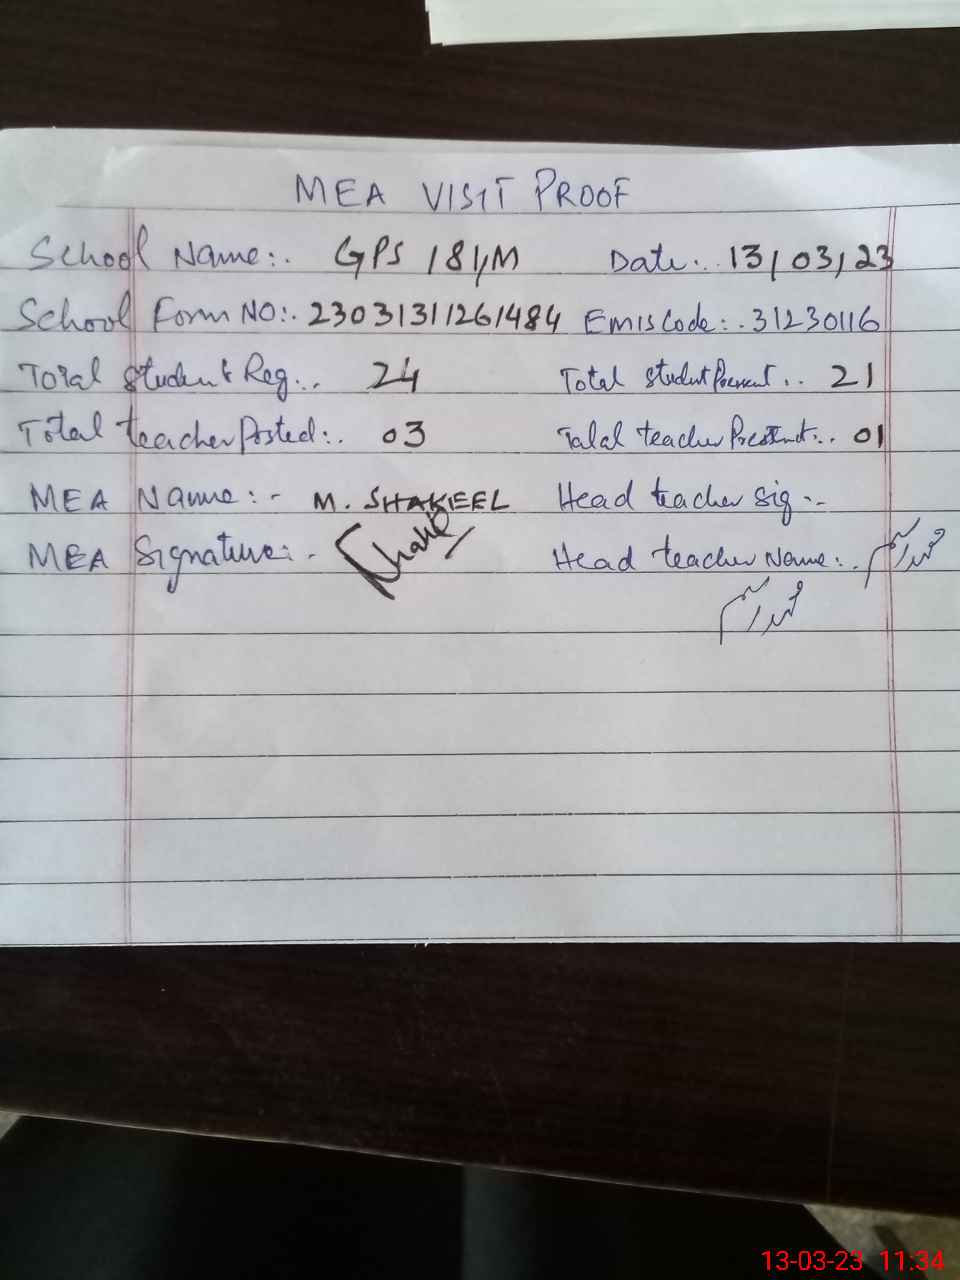 MEA VISIT PROOF
School Name:. GPS 181/M Date:. 13/03/23
School Form NO:. 23031311261484 EMIS Code:. 31230116
Total student Reg:. 24 Total student Present:. 21
Total teacher Posted:. 03 Total teacher Present:. 01
MEA Name:- M. SHAKEEL Head teacher sig:-
MEA Signature:- Head teacher Name:.
13-03-23 11:34